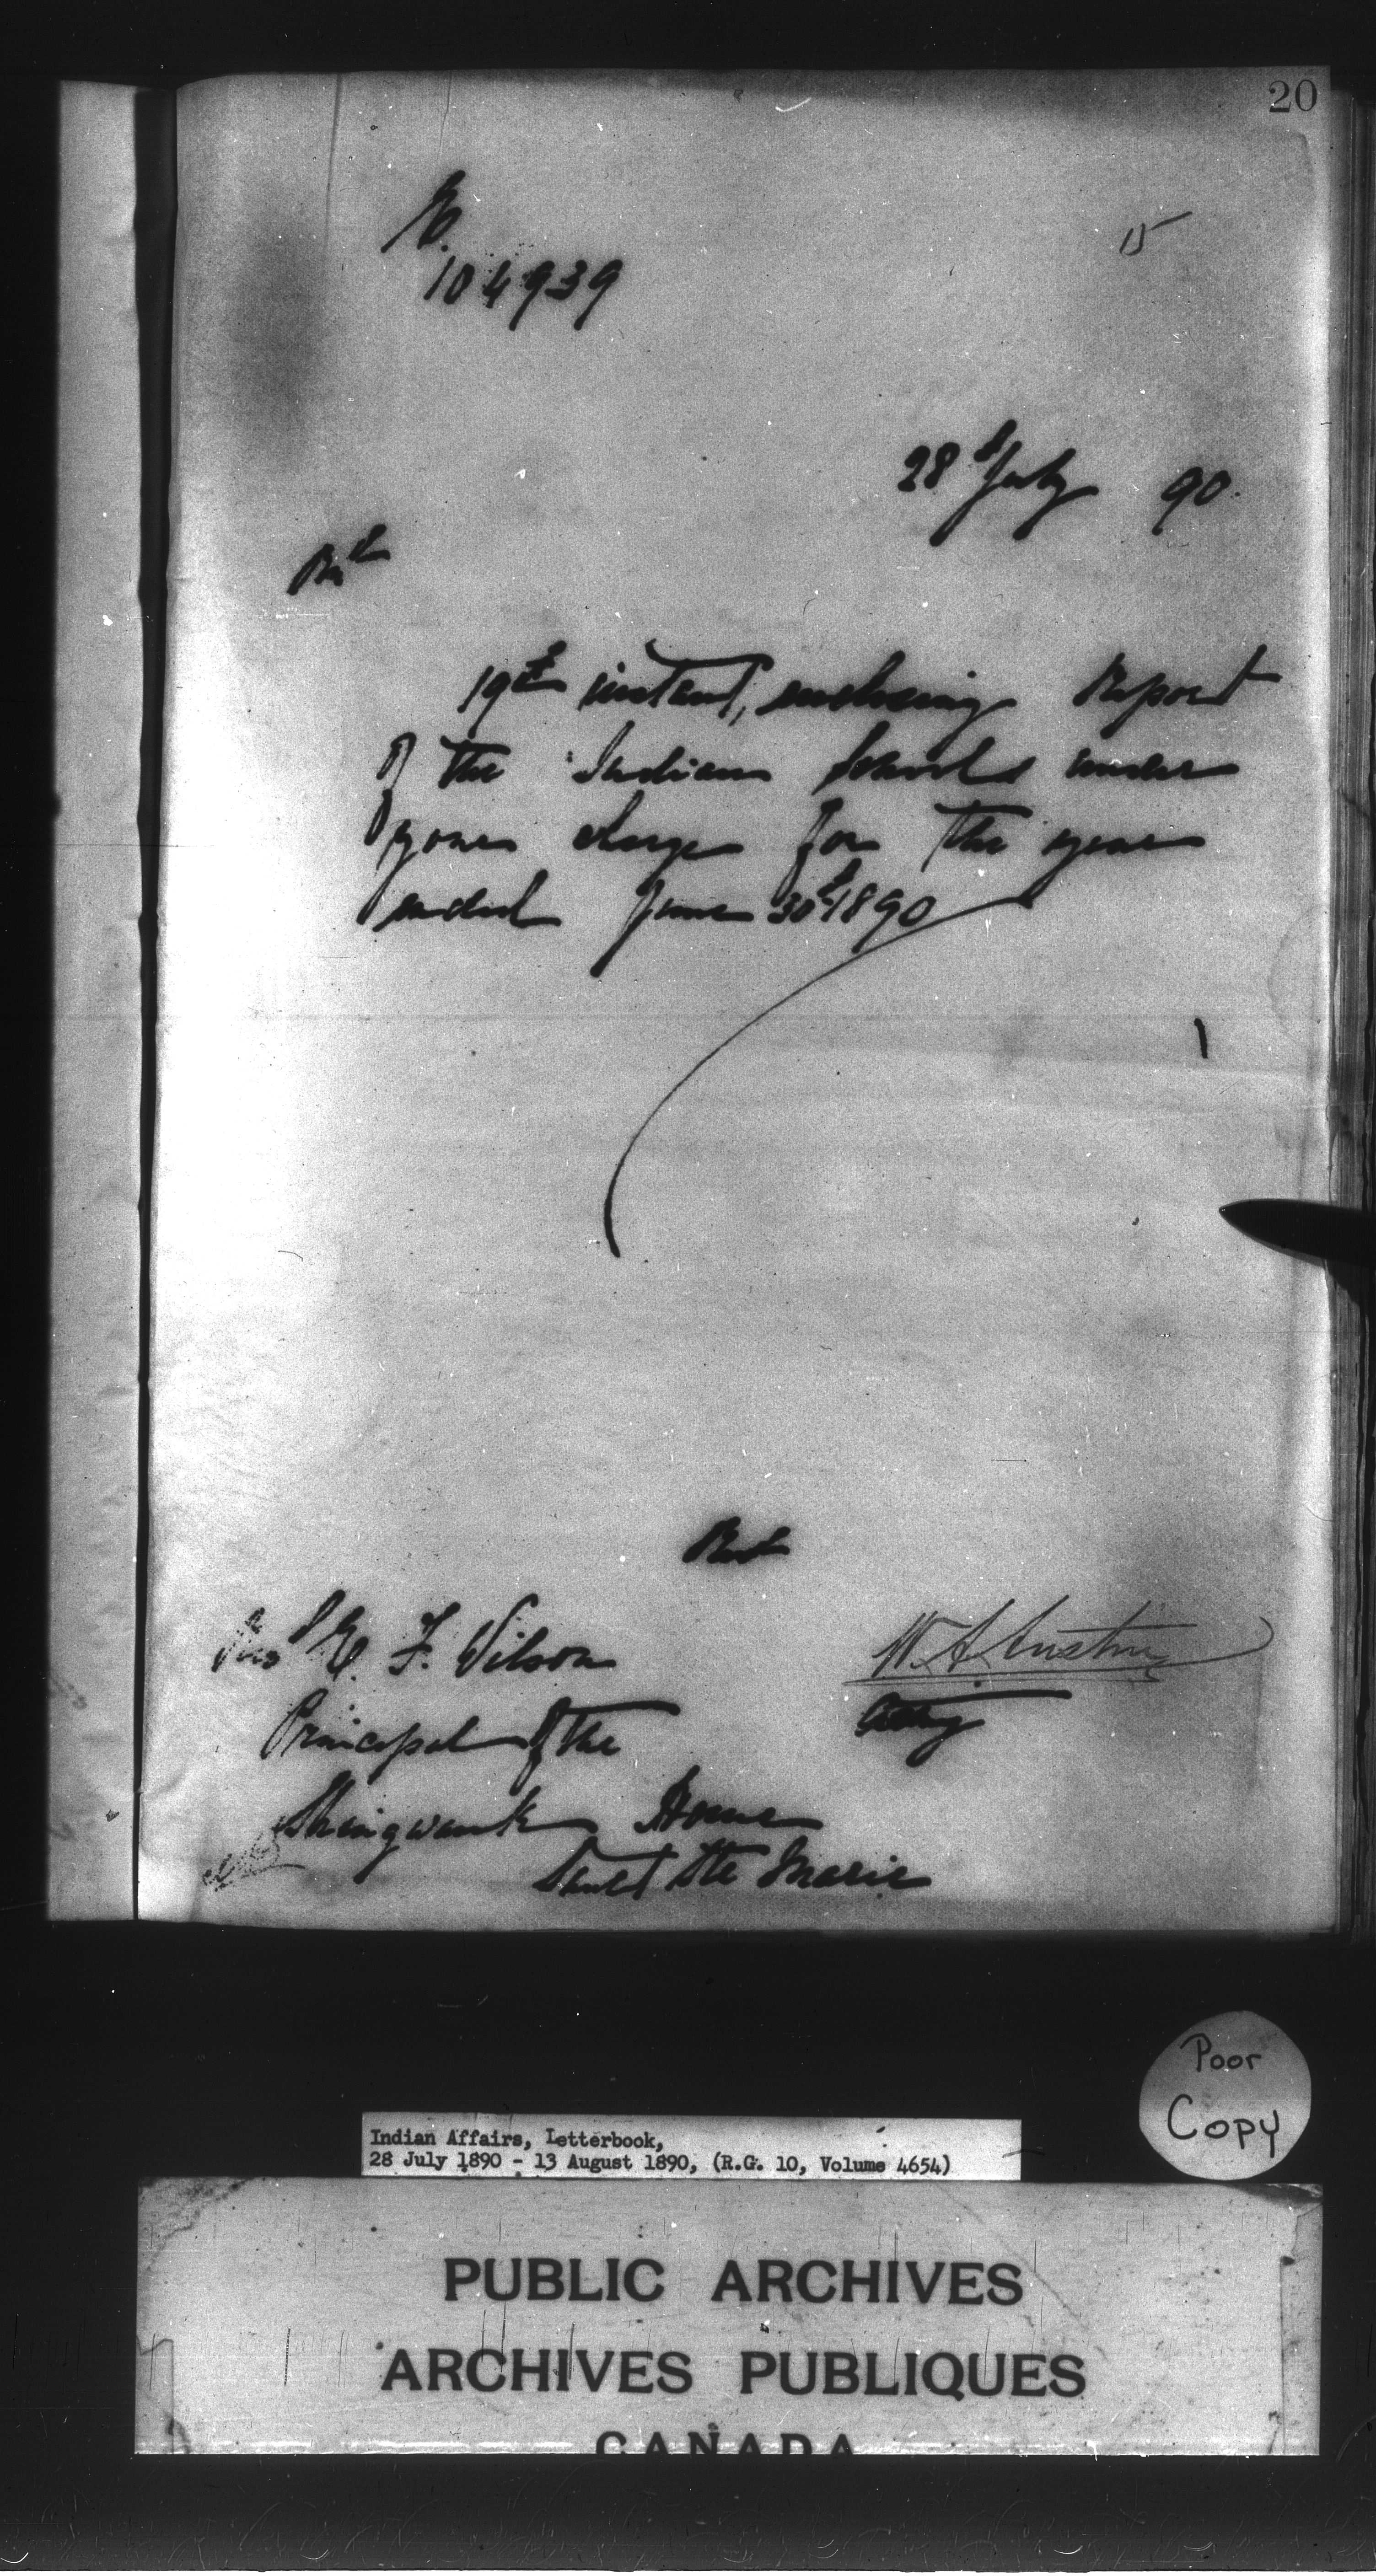 20
15
104939
28 July 90.
19th instant, enclosing Report
of the Indian Schools under
your charge for the year
ended June 30th 1890
Revd E. F. Wilson
W. A. Austin
Principal of the
Acting
Shingwauk Home
Sault Ste Marie
Poor
Copy
Indian Affairs, Letterbook,
28 July 1890 - 13 August 1890, (R.G. 10, Volume 4654)
PUBLIC ARCHIVES
ARCHIVES PUBLIQUES
CANADA